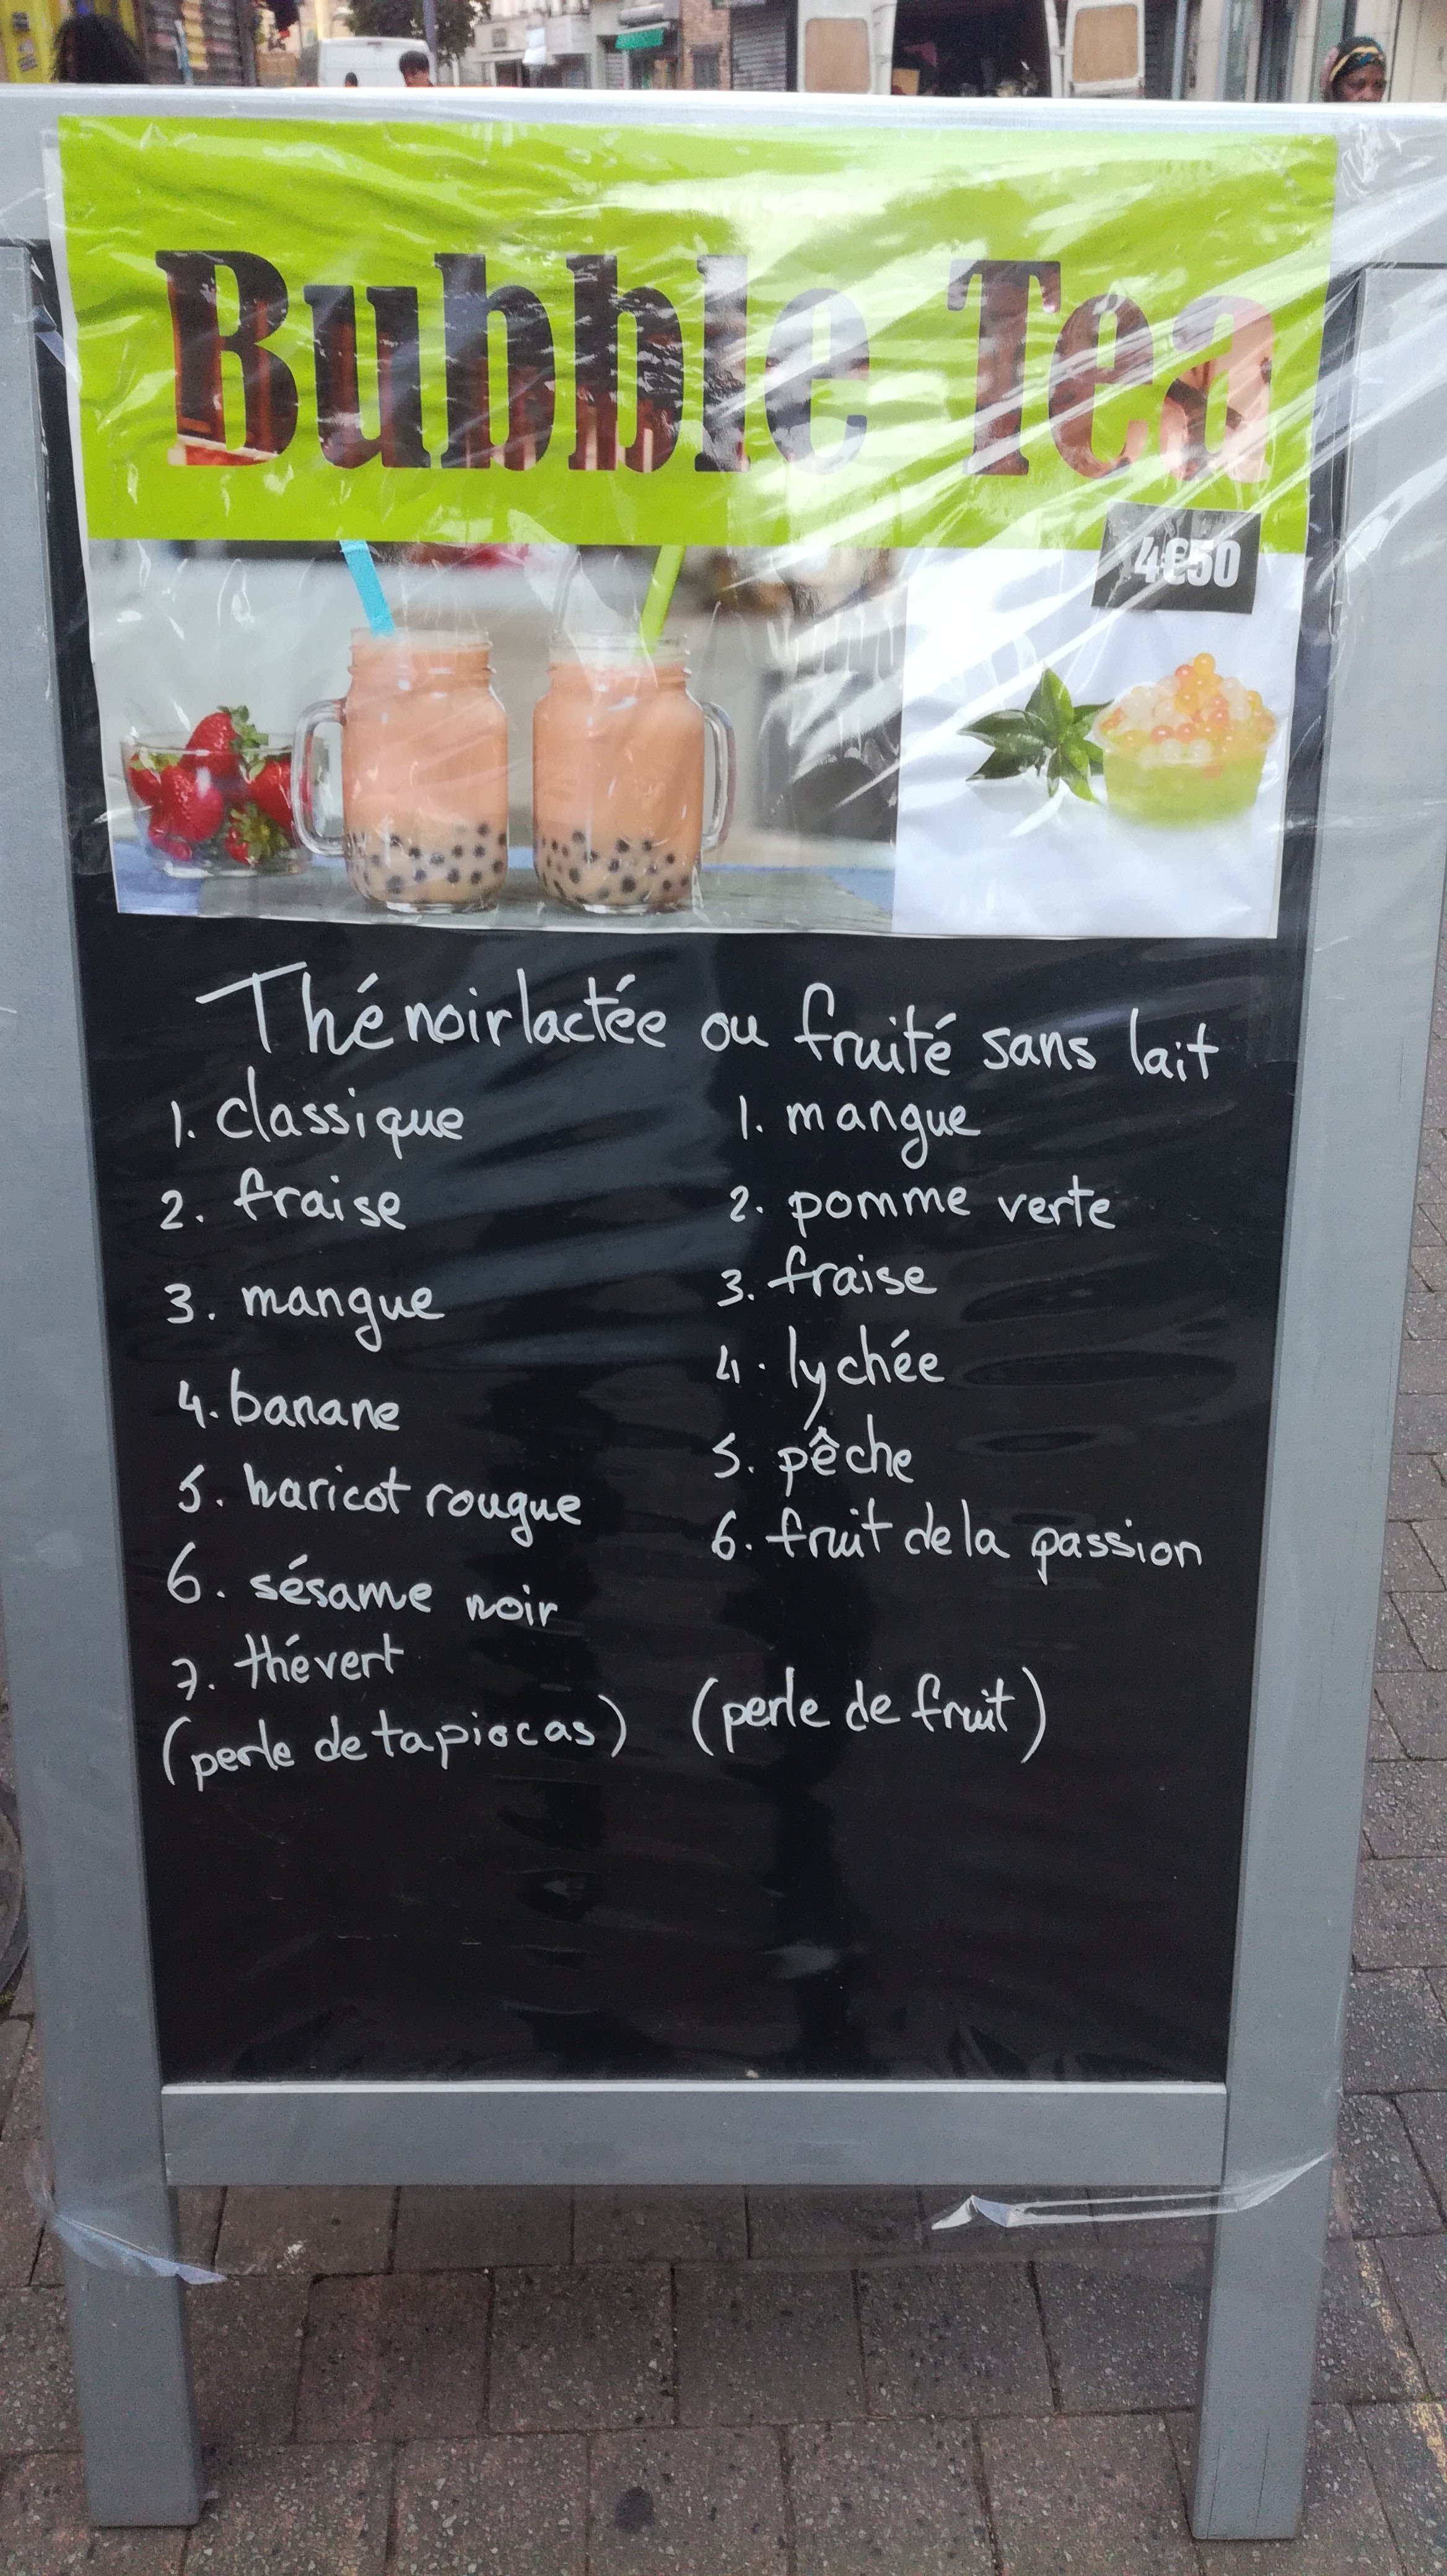 Bubble Tea
4€50
Thé noir lactée ou fruité sans lait
1. classique
2. fraise
3. mangue
4. banane
5. haricot rougue
6. sésame noir
7. thé vert
(perle de tapiocas)
1. mangue
2. pomme verte
3. fraise
4. lychée
5. pêche
6. fruit de la passion
(perle de fruit)